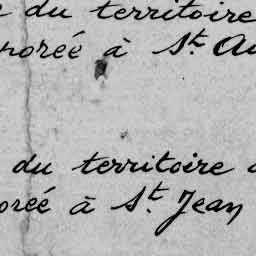 du territoire
norée à St. Au
du territoire
orée à St. Jean